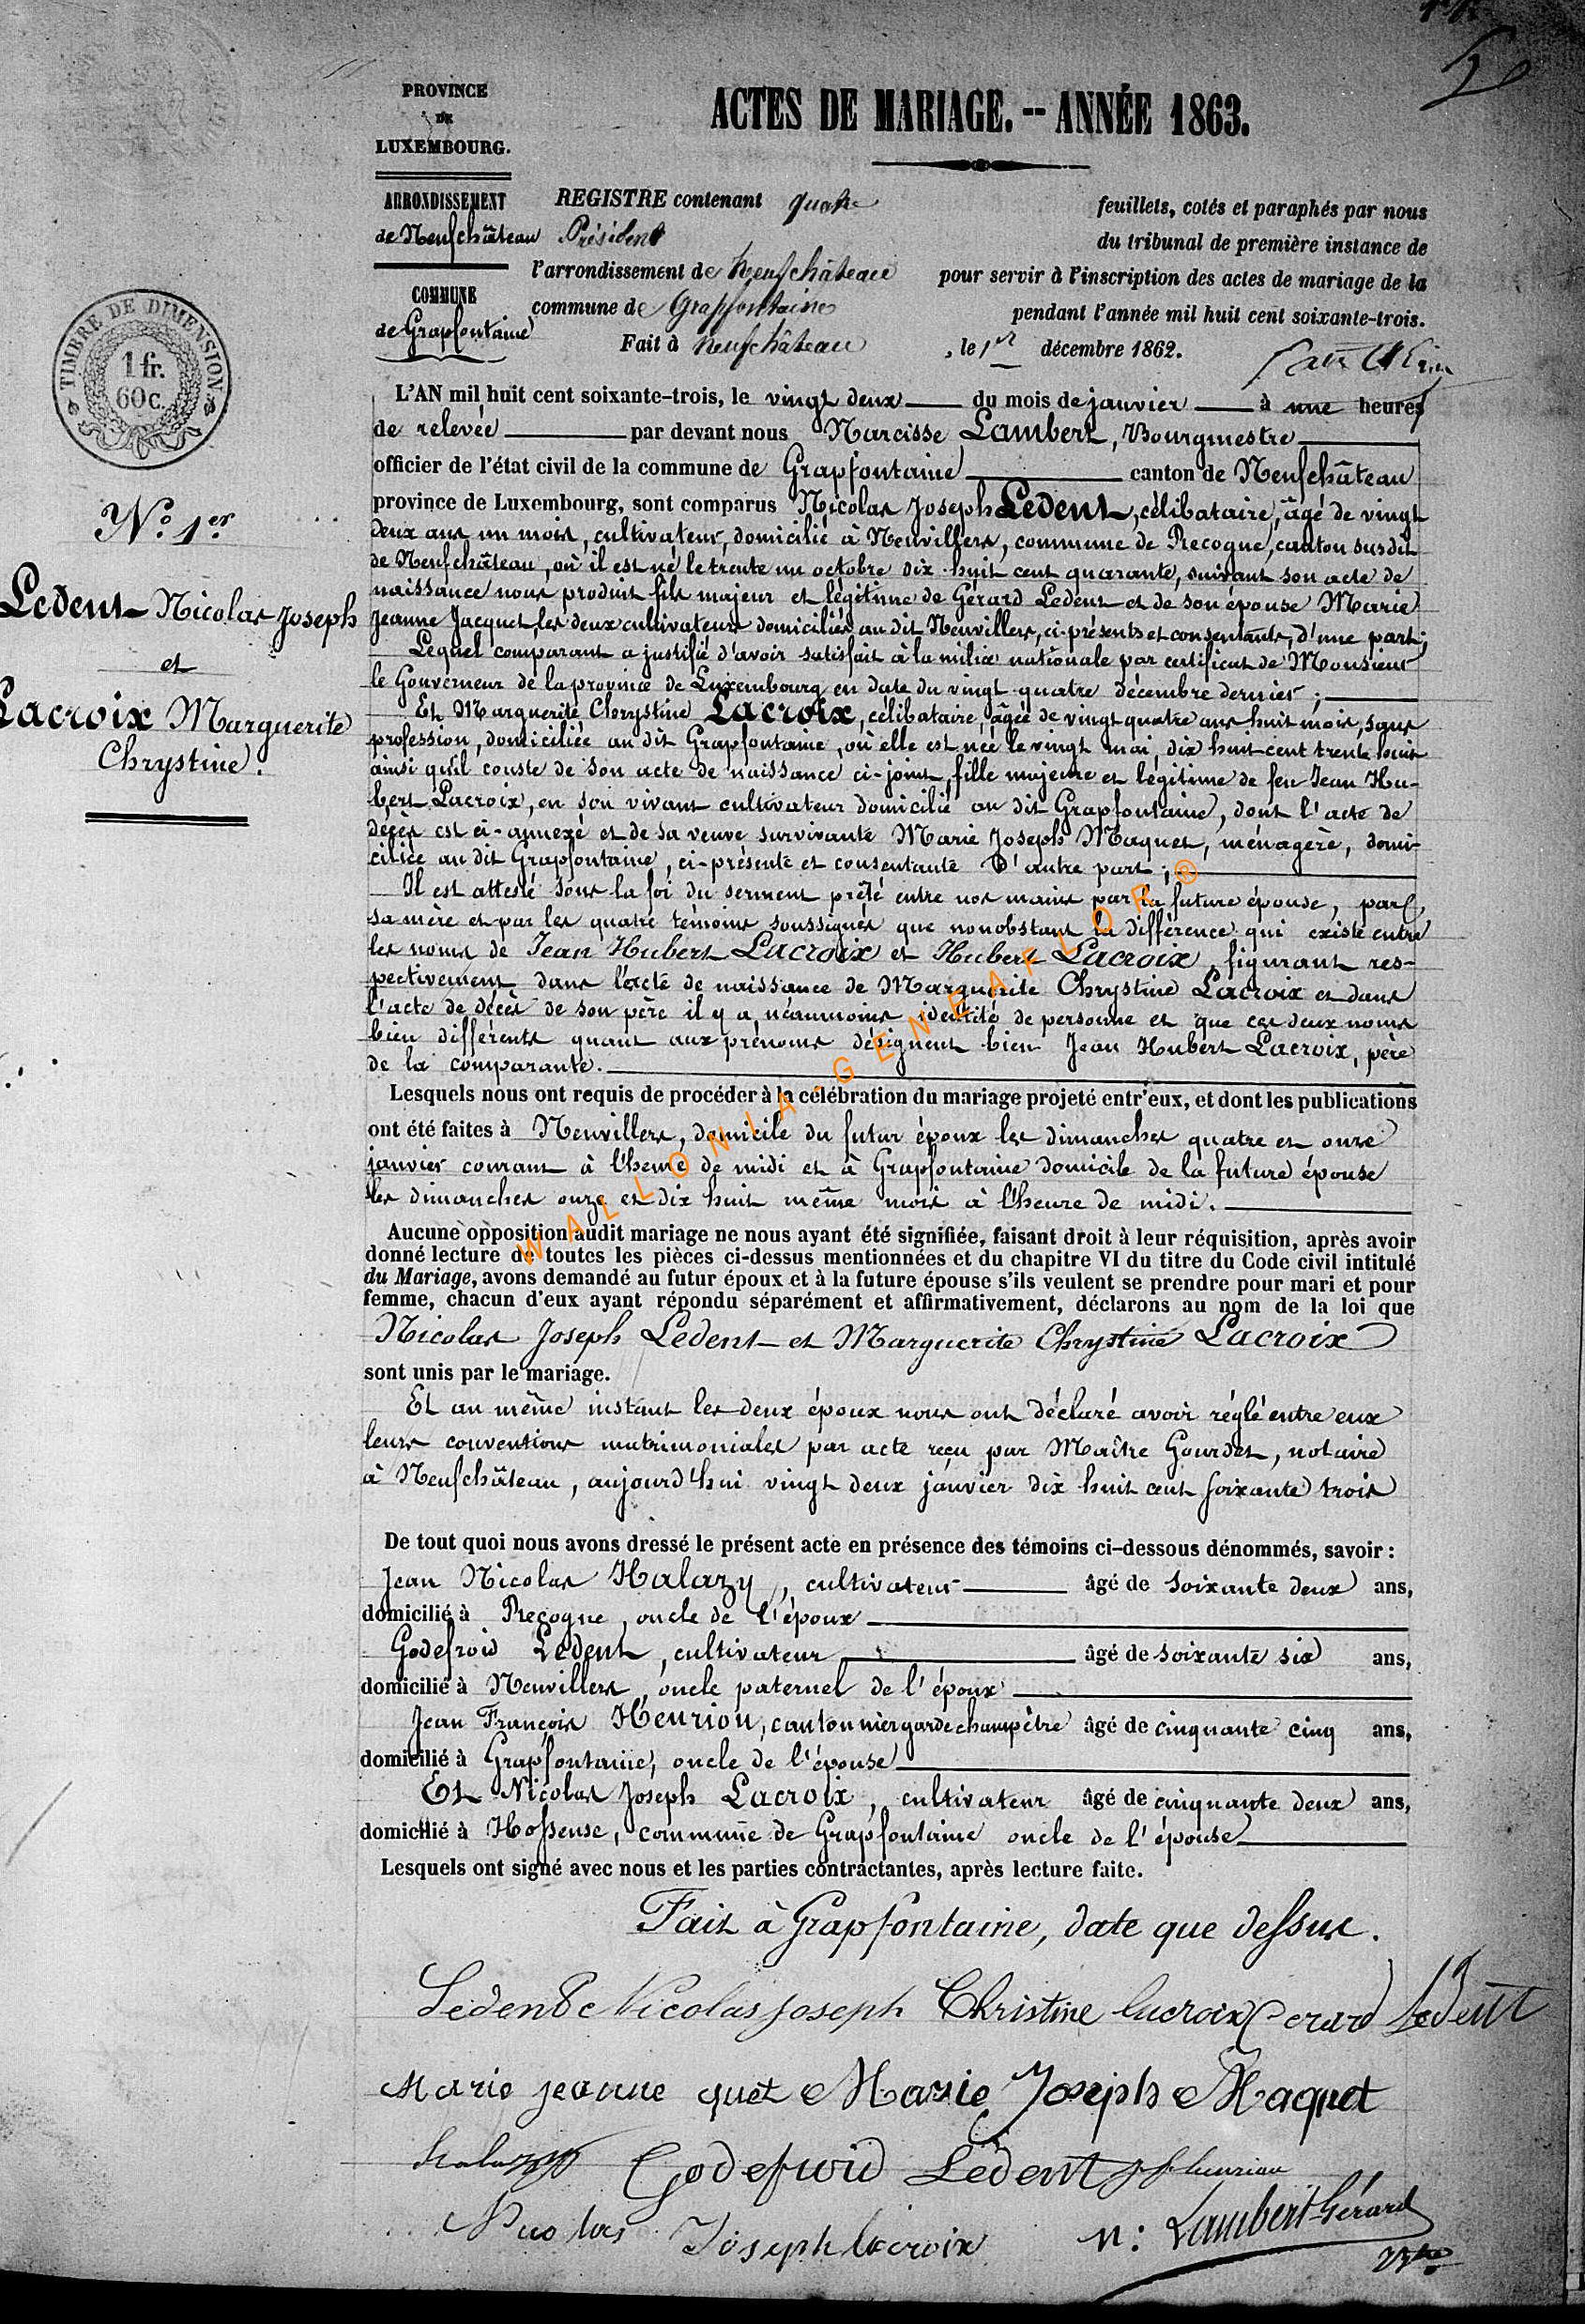 PROVINCE
DE
LUXEMBOURG.
ACTES DE MARIAGE. -- ANNÉE 1863.
ARRONDISSEMENT
de Neufchâteau
COMMUNE
de Grapfontaine
REGISTRE contenant quatre feuillets, cotés et paraphés par nous
Président du tribunal de première instance de
l'arrondissement de Neufchâteau pour servir à l'inscription des actes de mariage de la
commune de Grapfontaine pendant l'année mil huit cent soixante-trois.
Fait à Neufchâteau, le 1er décembre 1862.
TIMBRE DE DIMENSION
1 fr.
60c.
N° 1er
Ledent Nicolas Joseph
et
Lacroix Marguerite
Chrystine.
L'AN mil huit cent soixante-trois, le vingt deux du mois de janvier à une heures
de relevée par devant nous Narcisse Lambert, Bourgmestre
officier de l'état civil de la commune de Grapfontaine canton de Neufchâteau
province de Luxembourg, sont comparus Nicolas Joseph Ledent, célibataire, âgé de vingt
deux ans un mois, cultivateur, domicilié à Neuvillers, commune de Recogne, canton susdit
de Neufchâteau, où il est né le trente un octobre dix huit cent quarante, suivant son acte de
naissance nous produit fils majeur et légitime de Gérard Ledent et de son épouse Marie
Jeanne Jacquet, les deux cultivateurs domiciliés au dit Neuvillers, ci-présents et consentants, d'une part;
Lequel comparant a justifié d'avoir satisfait à la milice nationale par certificat de Monsieur
le Gouverneur de la province de Luxembourg en date du vingt-quatre décembre dernier;
Et Marguerite Chrystine Lacroix, célibataire, âgée de vingt quatre ans huit mois, sans
profession, domiciliée au dit Grapfontaine, où elle est née le vingt mai, dix huit cent trente huit
ainsi qu'il conste de son acte de naissance ci-joint, fille majeure et légitime de feu Jean Hu-
bert Lacroix, en son vivant cultivateur domicilié au dit Grapfontaine, dont l'acte de
décès est ci-annexé et de sa veuve survivante Marie Joseph Maquet, ménagère, domi-
ciliée au dit Grapfontaine, ci-présente et consentante D'autre part;
Il est attesté sous la foi du serment prêté entre nos mains par la future épouse, par
sa mère et par les quatre témoins soussignés que nonobstant la différence qui existe entre
les noms de Jean Hubert Lacroix et Hubert Lacroix, figurant res-
pectivement dans l'acte de naissance de Marguerite Chrystine Lacroix et dans
l'acte de décès de son père il y a néanmoins identité de personne et que ces deux noms
bien différents quant aux prénoms désignent bien Jean Hubert Lacroix, père
de la comparante.
Lesquels nous ont requis de procéder à la célébration du mariage projeté entr'eux, et dont les publications
ont été faites à Neuvillers, domicile du futur époux les dimanches quatre et onze
janvier courant à l'heure de midi et à Grapfontaine domicile de la future épouse
les dimanches onze et dix huit même mois à l'heure de midi.
Aucune opposition audit mariage ne nous ayant été signifiée, faisant droit à leur réquisition, après avoir
donné lecture de toutes les pièces ci-dessus mentionnées et du chapitre VI du titre du Code civil intitulé
du Mariage, avons demandé au futur époux et à la future épouse s'ils veulent se prendre pour mari et pour
femme, chacun d'eux ayant répondu séparément et affirmativement, déclarons au nom de la loi que
Nicolas Joseph Ledent et Marguerite Chrystine Lacroix
sont unis par le mariage.
Et au même instant les deux époux nous ont déclaré avoir réglé entre eux
leurs conventions matrimoniales par acte reçu par Maître Gourdet, notaire
à Neufchâteau, aujourd'hui vingt deux janvier dix huit cent soixante trois
De tout quoi nous avons dressé le présent acte en présence des témoins ci-dessous dénommés, savoir :
Jean Nicolas Halazy, cultivateur âgé de soixante deux ans,
domicilié à Recogne, oncle de l'époux
Godefroid Ledent, cultivateur âgé de soixante six ans,
domicilié à Neuvillers, oncle paternel de l'époux
Jean François Henrion, cantonnier garde champêtre âgé de cinquante cinq ans,
domicilié à Grapfontaine, oncle de l'épouse
Et Nicolas Joseph Lacroix, cultivateur âgé de cinquante deux ans,
domicilié à Hosseuse, commune de Grapfontaine oncle de l'épouse
Lesquels ont signé avec nous et les parties contractantes, après lecture faite.
Fait à Grapfontaine, date que dessus.
Ledent Nicolas Joseph Christine lacroix Gerard Ledent
Marie jeanne quet Marie Joseph Maquet
Halazy Godefroid Ledent jf henrion
Nicolas Joseph lacroix n: Lambert Gérard
WALLONIA-GENEAFLOR®